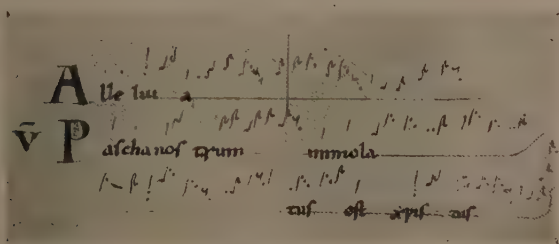 Alle lui a
v̄ Pascha nos trum immola
tus est xpis tus